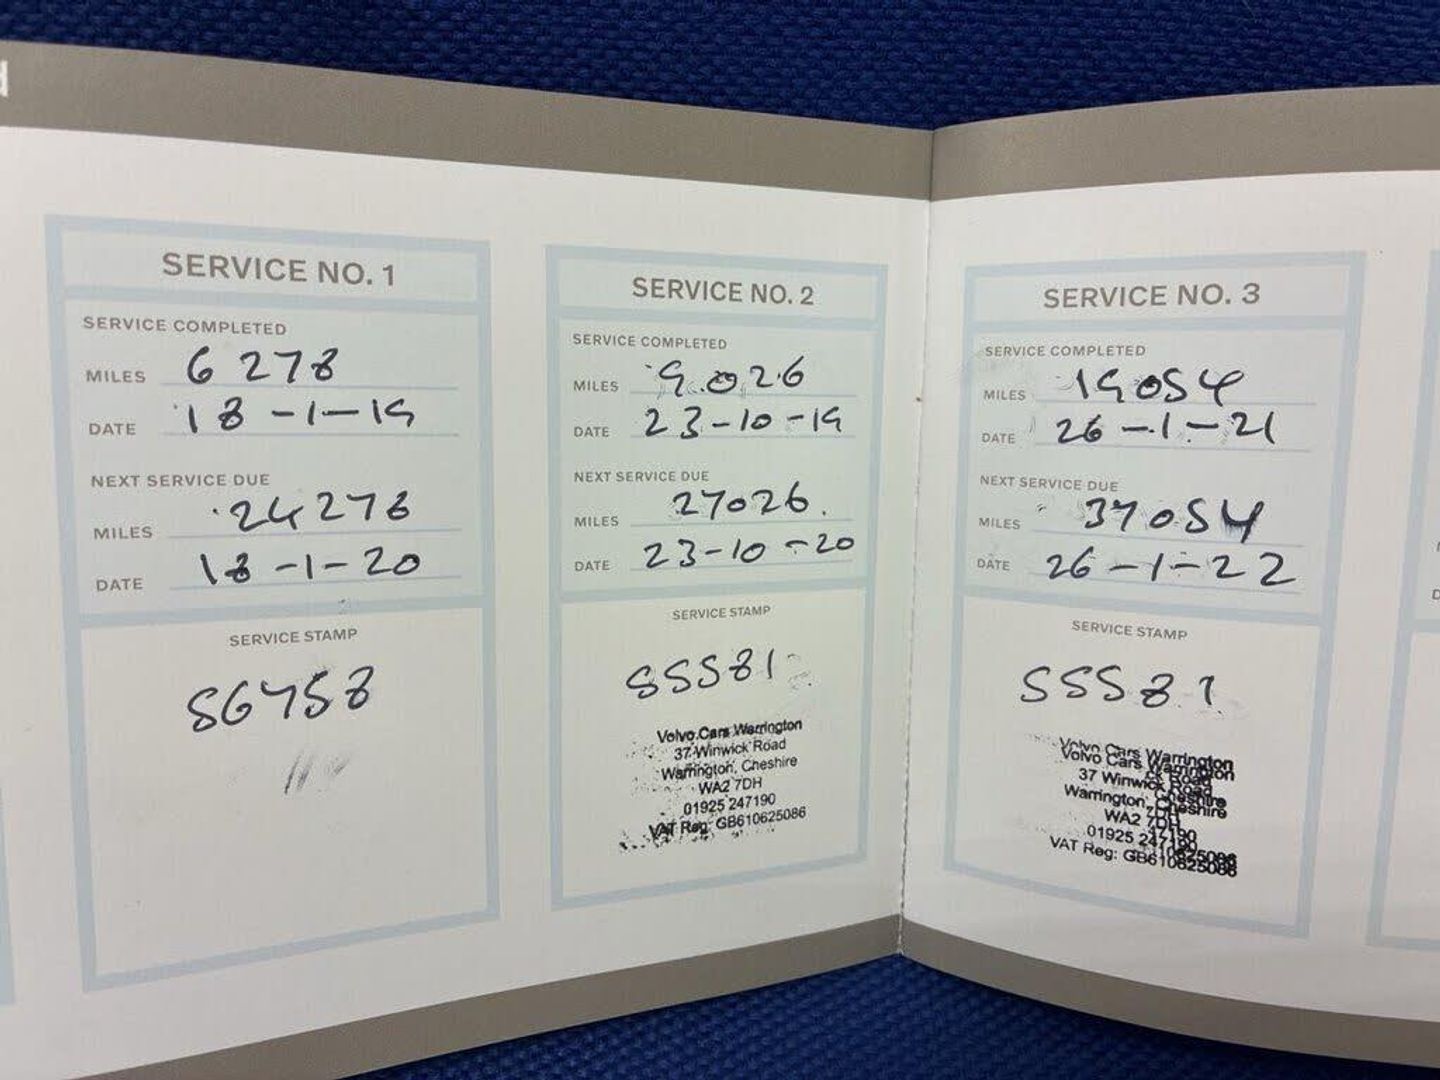 d
SERVICE NO. 1
SERVICE COMPLETED
MILES 6 278
DATE 18-1-19
NEXT SERVICE DUE
MILES 24278
DATE 18-1-20
SERVICE STAMP
SERVICE NO. 2
SERVICE COMPLETED
MILES 9.026
DATE 23-10-19
NEXT SERVICE DUE
MILES 27026.
DATE 23-10-20
SERVICE STAMP
SSS81
Volvo Cars Warrington
37 Winwick Road
Warrington, Cheshire
WA2 7DH
01925 247190
VAT Reg: GB610625086
SERVICE NO. 3
SERVICE COMPLETED
MILES 19054
DATE 26-1-21
NEXT SERVICE DUE
MILES 37054
DATE 26-1-22
SERVICE STAMP
SSS81
Volvo Cars Warrington
37 Winwick Road
Warrington, Cheshire
WA2 7DH
01925 247190
VAT Reg: GB610625086